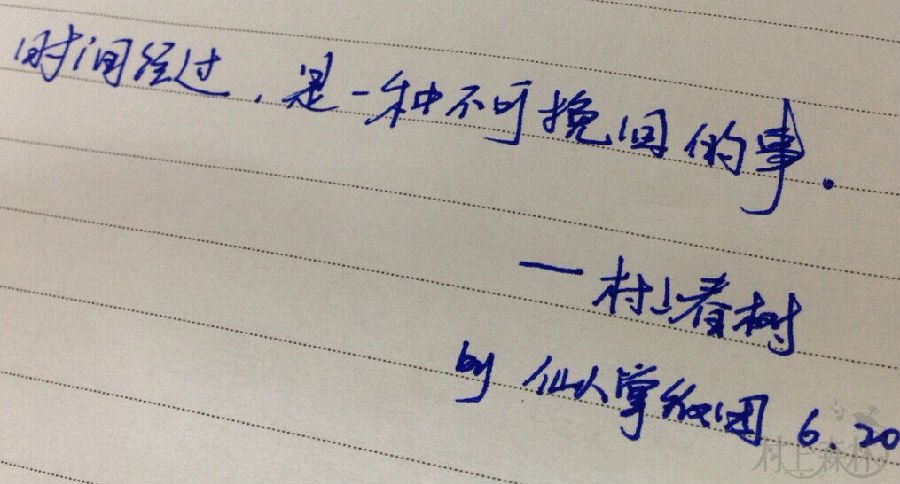 时间经过，是一种不可挽回的事.
—村上春树
by 仙人掌纷围 6.20
村上森林